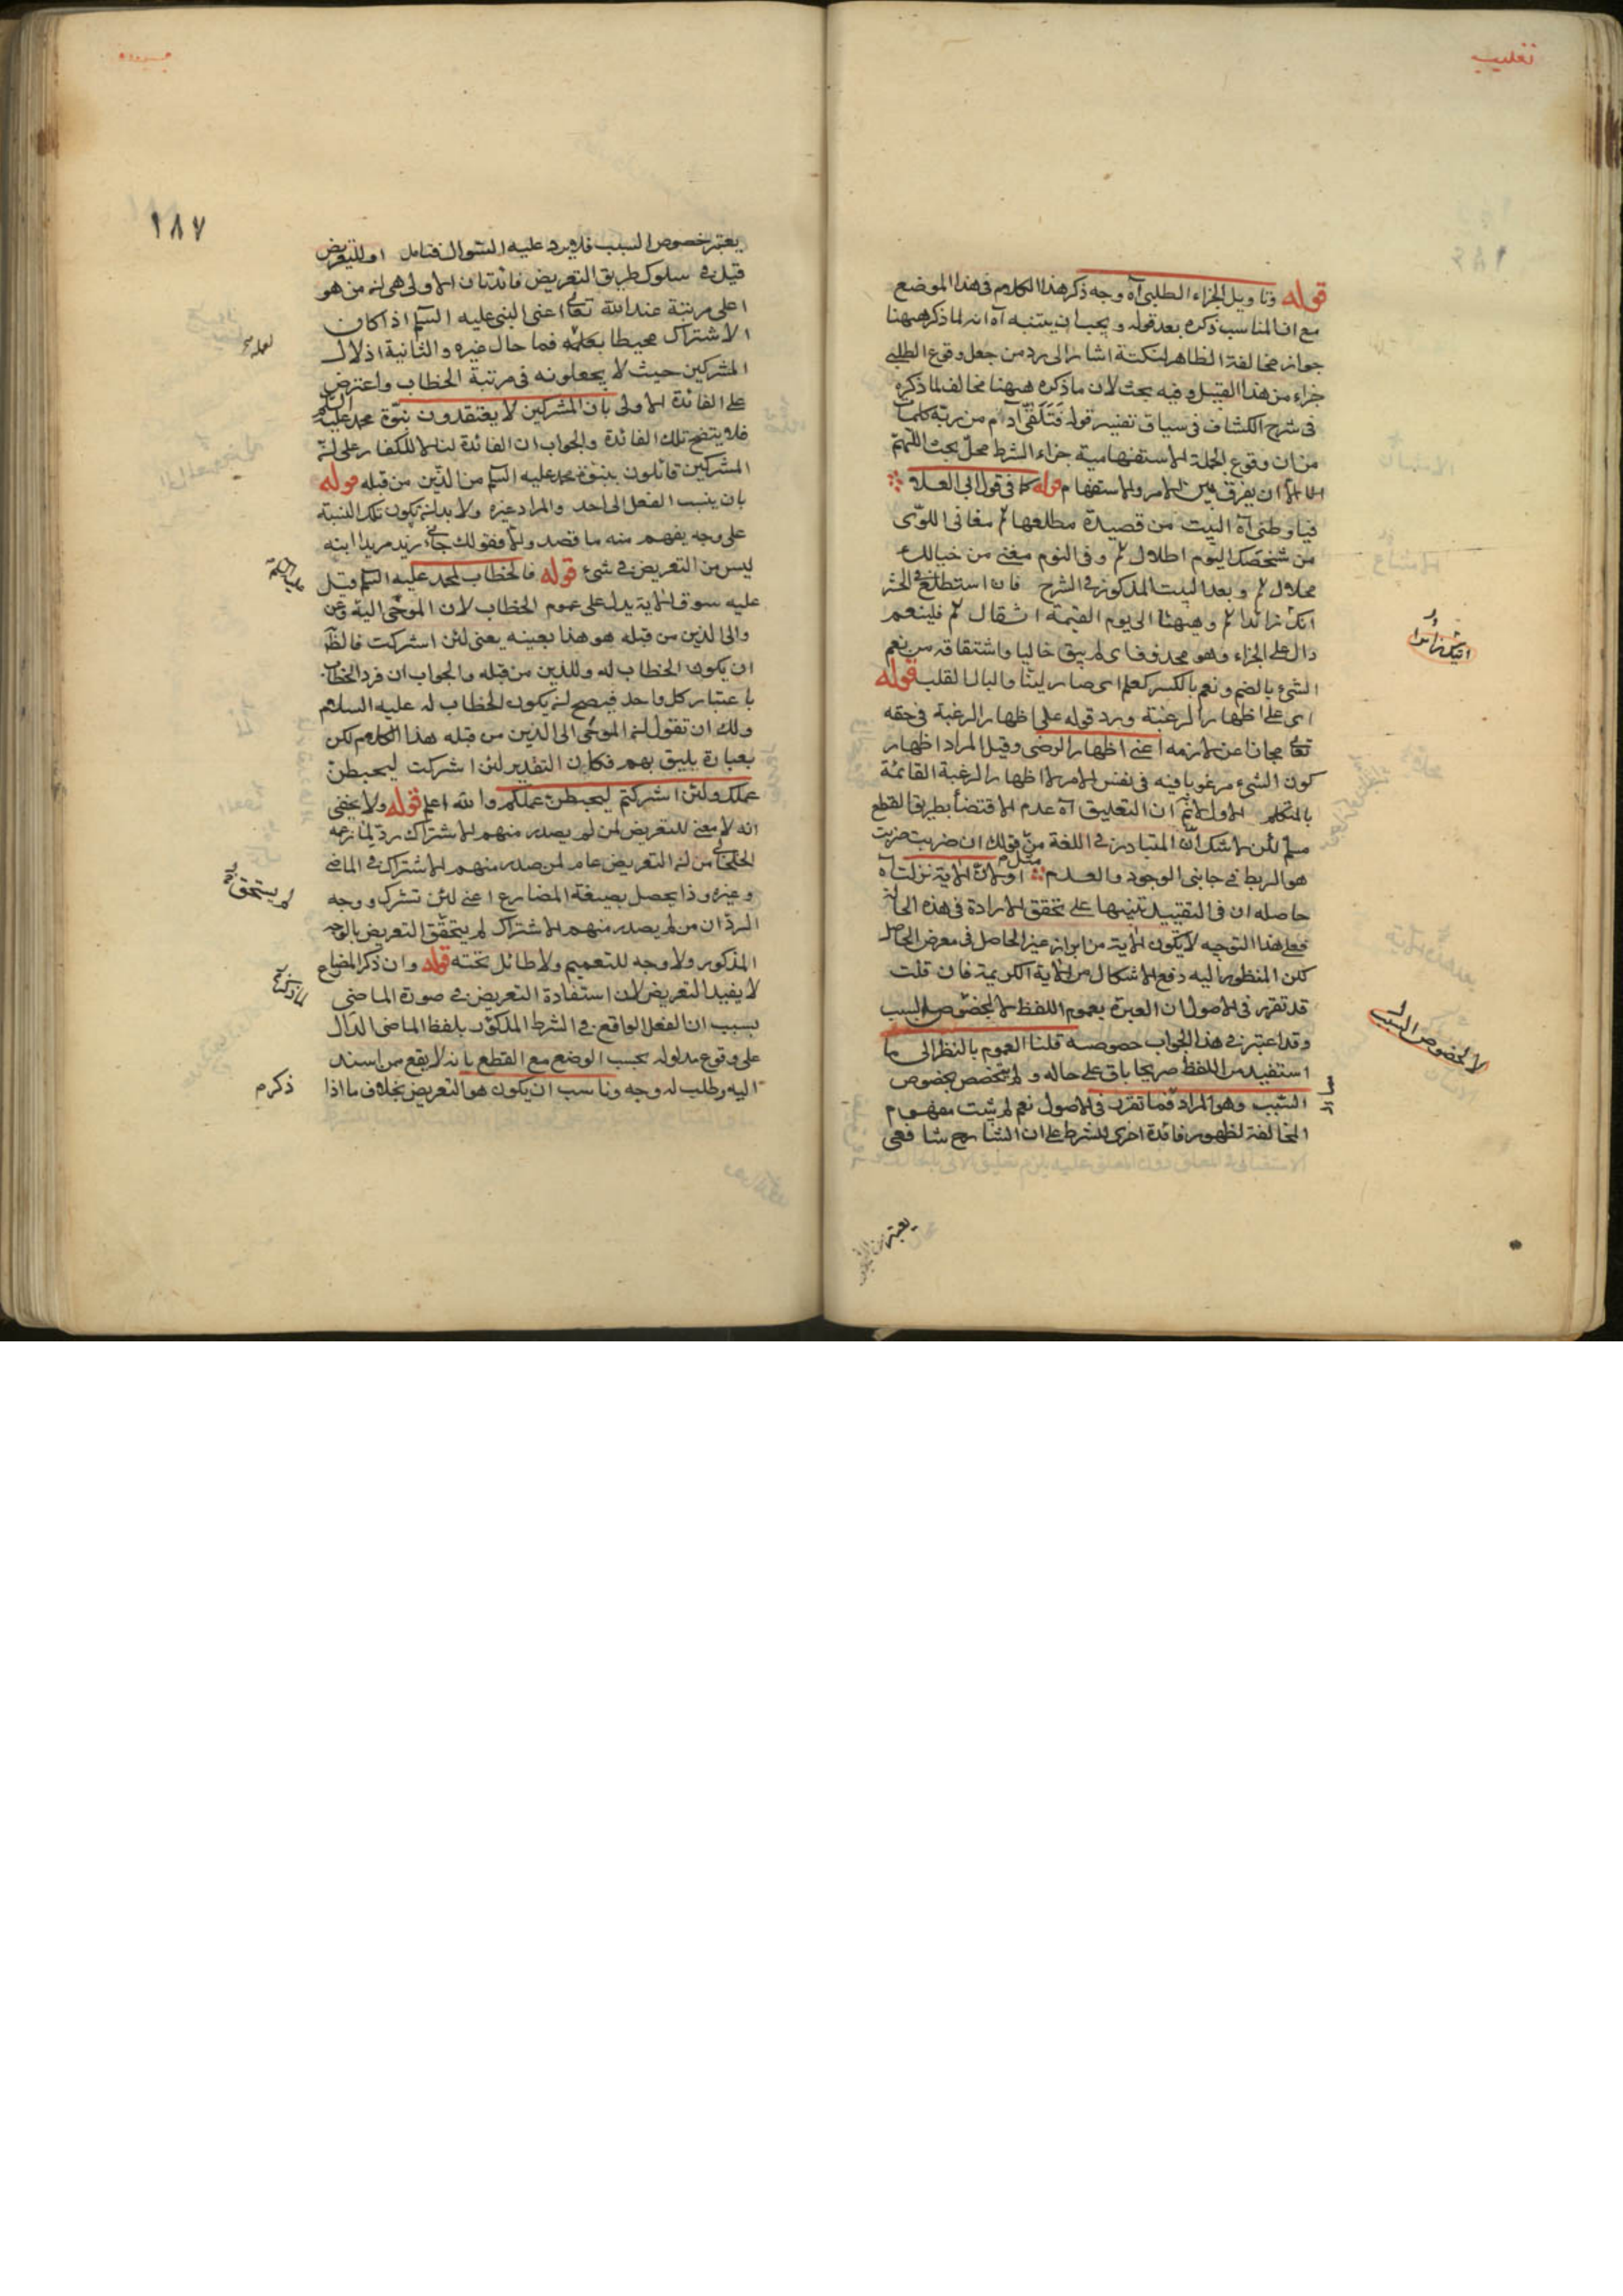 تغليب
قوله وتاويل الجزاء الطلبي آه وجه ذكر هذا الكلام في هذا الموضع
مع ان المناسب ذكره بعد قوله و يجب ان يتنبه آه انه لما ذكر ههنا
جواز مخالفة الظاهر لنكتة اشار الى رد من جعل وقوع الطلبي
جزاء من هذا القبيل وفيه بحث لان ما ذكره ههنا مخالف لما ذكره
في شرح الكشاف في سياق تفسير قوله فتلقى آدم من ربه كلمات
من ان وقوع الجملة الاستفهامية جزاء الشرط محل بحث اللهم
الا ان يفرق بين الامر والاستفهام قوله كما في قول ابي العلاء
فيا وطني آه البيت من قصيدة مطلعها مغاني اللوى
من شخصك اليوم اطلال وفي النوم مغنى من خيالك
محلال وبعد البيت المذكور في الشرح فان استطع في الحشر
آتك زائرا وهيهات لي يوم القيمة اشغال فلينعم
دال على الجزاء وهو محذوف اى لم يبق خاليا واشتقاقه من نعم
الشئ بالضم ونعم بالكسر كعلم اى صار لينا والبال القلب قوله
اى على اظهار الرغبة ورد قوله على اظهار الرغبة في حقه
تعالى مجاز عن لازمه اعنى اظهار الرضى وقيل المراد اظهار
كون الشئ مرغوبا فيه في نفس الامر لا اظهار الرغبة القائمة
بالمتكلم ان التعليق آه عدم الاقتضاء بطريق القطع
مسلم لكن لا شك ان المتبادر في اللغة من مثل قولك ان ضربت ضربت
هو الربط في جانبي الوجود والعدم او لان الآية نزلت آه
حاصله ان في التقييد تنبيها على تحقق الارادة في هذه الحالة
فعلى هذا التوجيه لا يكون الآية من ابراز غير الحاصل في معرض الحاصل
لكن المنظور اليه دفع الاشكال من الآية الكريمة فان قلت
قد تقرر في الاصول ان العبرة بعموم اللفظ لا لخصوص السبب
وقد اعتبر في هذا الجواب خصوصه قلنا العموم بالنظر الى ما
استفيد من اللفظ صريحا باق على حاله ولم يتخصص بخصوص
السبب وهو المراد فما تقرر في الاصول نعم لم يثبت مفهوم
المخالفة لظهور فائدة اخرى للشرط على ان الشارح شافعى
آتيك زائرا
لا لخصوص السبب
١٨٧
يعتبر خصوص السبب فلا يرد عليه السؤال فتامل او للتعريض
قيل في سلوك طريق التعريض فائدتان الاولى هي انه من هو
اعلى مرتبة عند الله تعالى اعنى النبى عليه السلم اذا كان
الاشراك محيطا بعمله فما حال غيره والثانية اذلال
المشركين حيث لا يجعلونه في مرتبة الخطاب واعترض
على الفائدة الاولى بان المشركين لا يعتقدون نبوة محمد عليه السلم
فلا يتضح تلك الفائدة والجواب ان الفائدة لنا لا للكفار على انه
المشركين قائلون بنبوة محمد عليه السلم من الذين من قبله قوله
بان ينسب الفعل الى احد والمراد غيره ولا بد انه يكون تلك النسبة
على وجه يفهم منه ما قصد والا فقولك جاءنى زيد مريدا ابنه
ليس من التعريض في شئ قوله فالخطاب لمحمد عليه السلم قيل
عليه سوق الآية يدل على عموم الخطاب لان الموحى اليه
والى الذين من قبله هو هذا بعينه يعنى لئن اشركت فالظاهر
ان يكون الخطاب له وللذين من قبله والجواب ان فرد الخطاب
باعتبار كل واحد فيصح انه يكون الخطاب له عليه السلام
ولك ان تقول انه الموحى الى الذين من قبله هذا الكلام لكن
بعبارة يليق بهم فكان التقدير لئن اشركت ليحبطن
عملك ولئن اشركتم ليحبطن عملكم والله اعلم قوله ولا يخفى
انه لا معنى للتعريض لمن لم يصدر منهم الاشراك رد لما زعمه
الخلخالى من انه التعريض عام لمن صدر منهم الاشراك في الماضى
وغيره وذا يحصل بصيغة المضارع اعنى لئن تشرك ووجه
الرد ان من لم يصدر منهم الاشراك لم يتحقق التعريض بالوجه
المذكور ولا وجه للتعميم ولا طائل تحته قوله وان ذكر المضارع
لا يفيد التعريض لان استفادة التعريض في صورة الماضى
بسبب ان الفعل الواقع في الشرط المذكور بلفظ الماضى الدال
على وقوع مدلوله بحسب الوضع مع القطع بانه لا يقع من اسند
اليه وطلب له وجه وناسب ان يكون هو التعريض بخلاف ما اذا
ذكر
لم يستحق